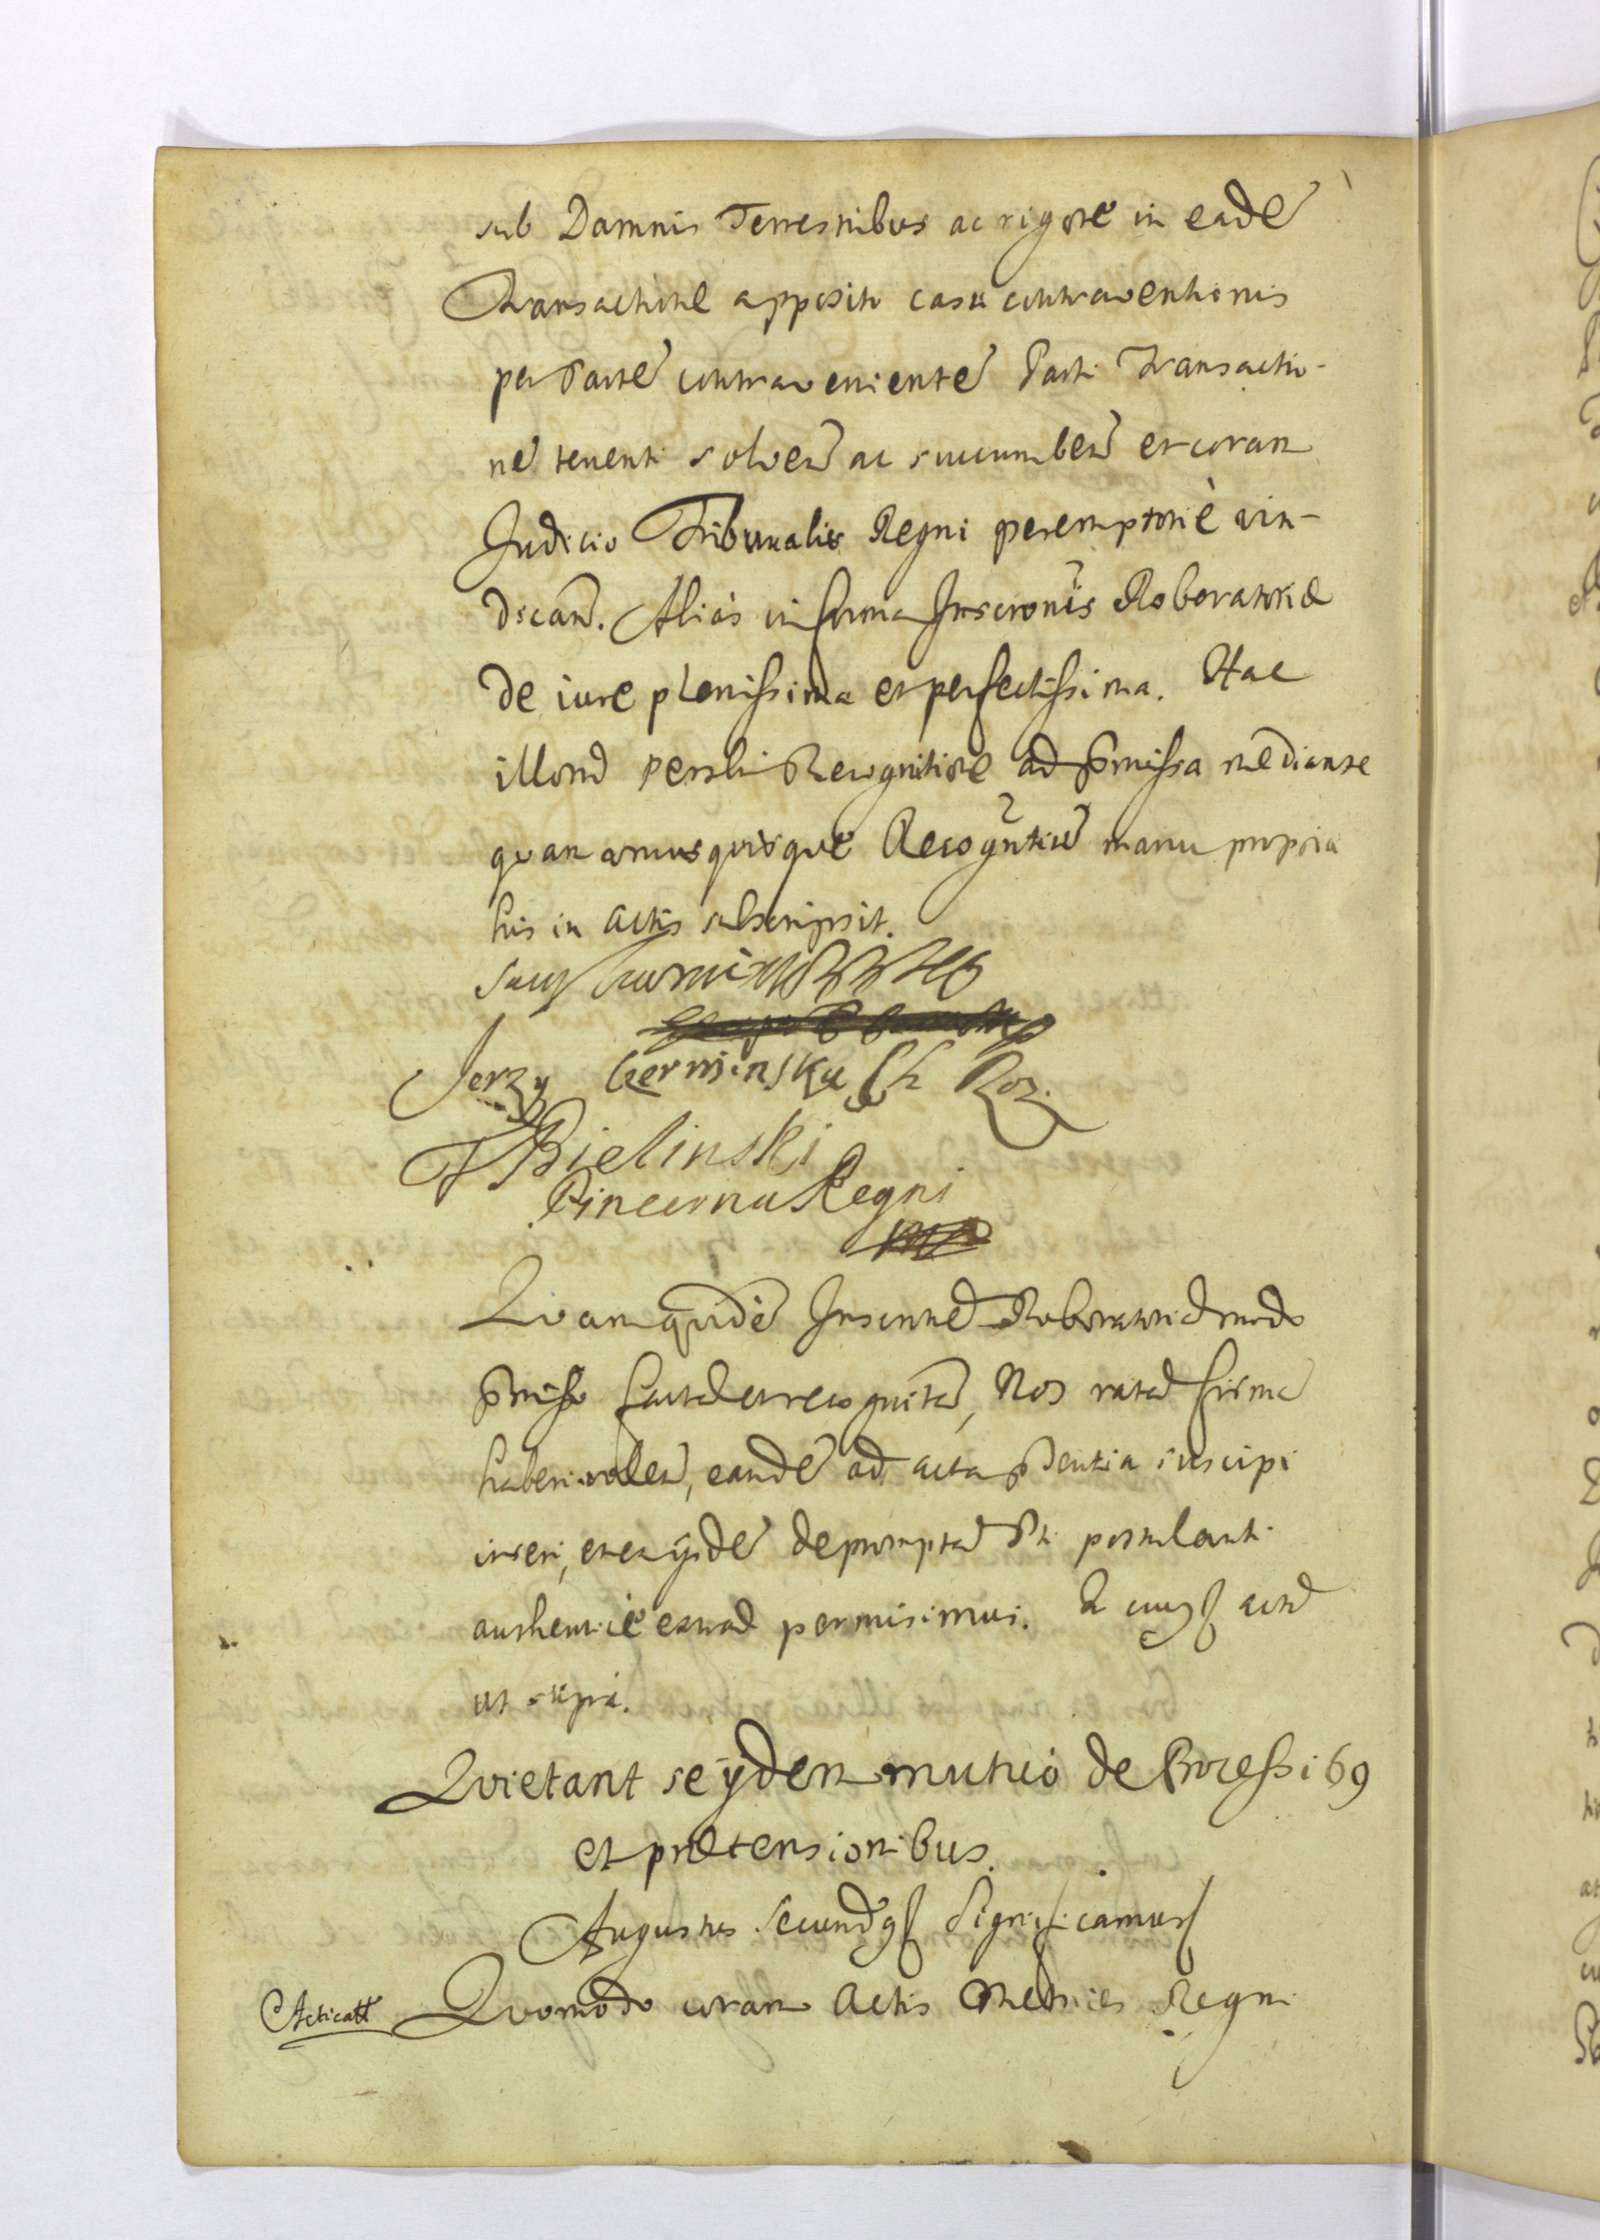 sub Damnis Terrestribus ac rigore in eade
Transactione apposito casu contraventionis
per Parte contraveniente Parti Transactio-
ne tenenti solven ac succumben et coram
Judicio Tribunalis Regni peremptorie vin-
dican. Alias in forma Inscronis Roboratoriæ
de iure plenissima et perfectissima. Hac
illorum persli Recognitione ad pmissa mediante
quam unusquisque Recogntium manu propria
his in actis subscripsit.
Jerzy Czerminsky Ch Roz.
Bielinski
Pincerna Regni
mp
Quam quide Inscronem Roboratoriam modo
pmisso factam et recognitam, Nos ratam firma
haberi volen, eande ad acta pdentia suscipi
inseri, et ex ijsde depromptam Pti postulanti
authentice extrad permisimus. In cuius act
ut supra.
Qvietant se ijdem mutuò de Processibg
et prætensionibus.
Augustus Secundg Significamus
Acticatt Quomodo coram Actis Metrices Regni